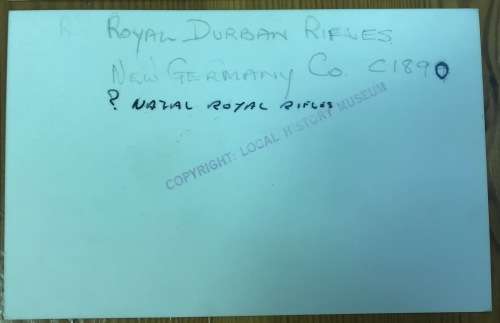 ROYAL DURBAN RIFLES
NEW GERMANY CO. C1890
? NATAL ROYAL RIFLES
COPYRIGHT: LOCAL HISTORY MUSEUM